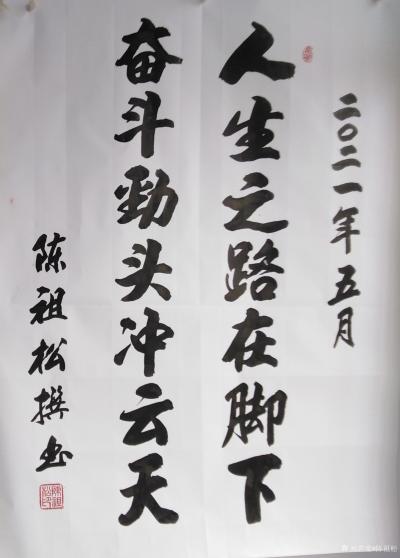 二〇二一年五月
人生之路在脚下
奋斗劲头冲云天
陈祖松撰书